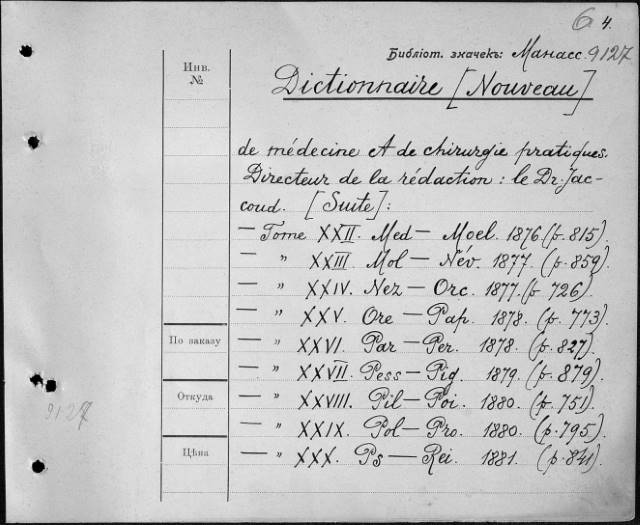 6 4.
Библіот. значекъ: Манасс. 9127
Инв.
№
Dictionnaire [Nouveau]
de médecine et de chirurgie pratiques.
Directeur de la rédaction : le Dr. Jac-
coud. [Suite]:
— Tome XXII. Med — Moel. 1876. (p. 815).
— " XXIII. Mol — Név. 1877. (p. 859)
— " XXIV. Nez — Orc. 1877. (p 726).
— " XXV. Ore — Pap. 1878. (p. 773).
По заказу
— " XXVI. Par — Per. 1878. (p. 827).
— " XXVII. Pess — Pig. 1879. (p. 879).
Откуда
— " XXVIII. Pil — Poi. 1880. (p. 751).
9127
— " XXIX. Pol — Pro. 1880. (p. 795).
Цѣна
— " XXX. Ps — Rei. 1881. (p. 841).